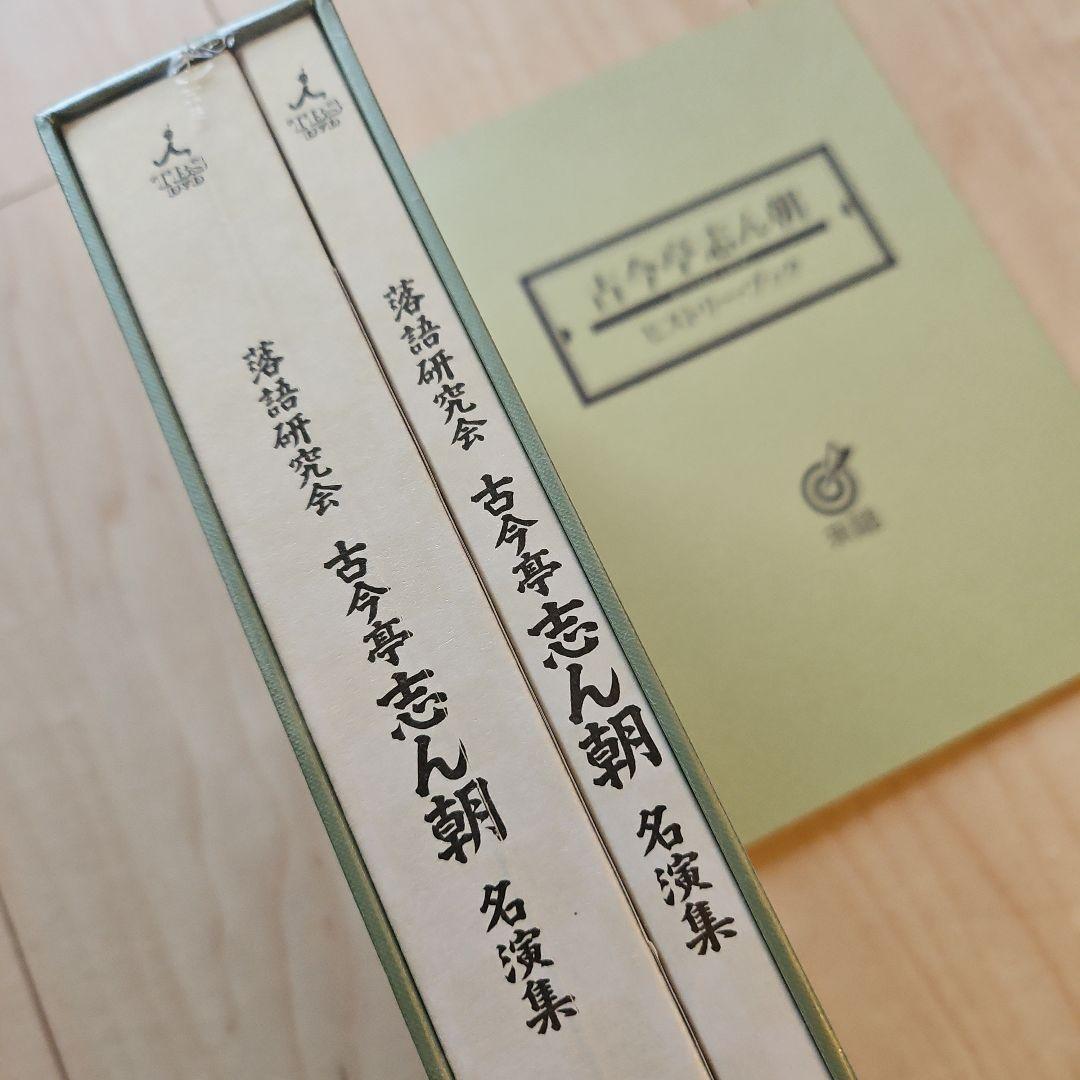 TBS
DVD
落語研究会 古今亭 志ん朝 名演集
TBS
DVD
落語研究会 古今亭 志ん朝 名演集
古今亭志ん朝
ヒストリー・ブック